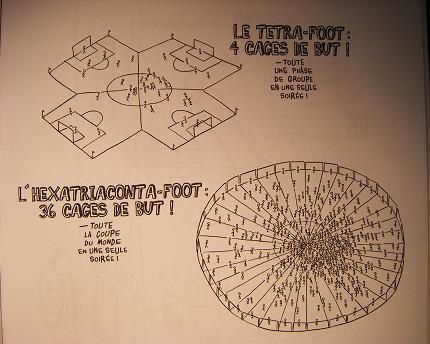 LE TETRA-FOOT:
4 CAGES DE BUT !
— TOUTE
UNE PHASE
DE GROUPE
EN UNE SEULE
SOIRÉE !
L'HEXATRIACONTA-FOOT:
36 CAGES DE BUT !
— TOUTE
LA COUPE
DU MONDE
EN UNE SEULE
SOIRÉE !